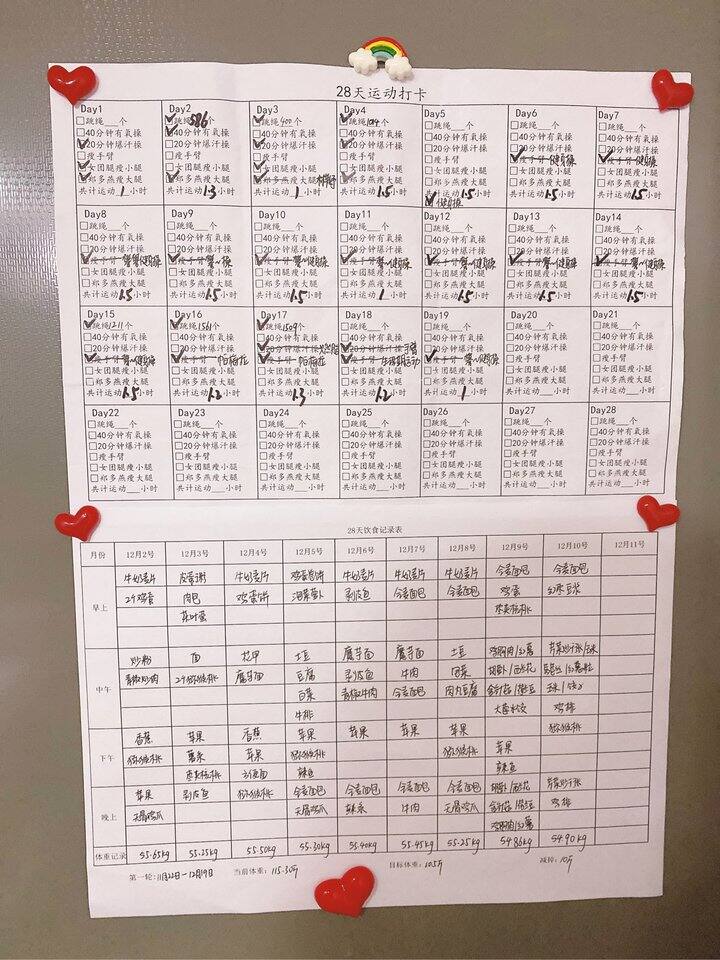 28天运动打卡
Day1
跳绳___个
40分钟有氧操
20分钟爆汗操
瘦手臂
女团腿瘦小腿
郑多燕瘦大腿
共计运动1小时
Day2
跳绳586个
40分钟有氧操
20分钟爆汗操
瘦手臂
女团腿瘦小腿
郑多燕瘦大腿
共计运动1.3小时
Day3
跳绳400个
40分钟有氧操
20分钟爆汗操
瘦手臂
女团腿瘦小腿
郑多燕瘦大腿
共计运动1小时
Day4
跳绳104个
40分钟有氧操
20分钟爆汗操
瘦手臂
女团腿瘦小腿
郑多燕瘦大腿
共计运动1.5小时
Day5
跳绳___个
40分钟有氧操
20分钟爆汗操
瘦手臂
女团腿瘦小腿
郑多燕瘦大腿
共计运动1.5小时
健身操
Day6
跳绳___个
40分钟有氧操
20分钟爆汗操
瘦手臂 健身操
女团腿瘦小腿
郑多燕瘦大腿
共计运动1.5小时
Day7
跳绳___个
40分钟有氧操
20分钟爆汗操
瘦手臂 健身操
女团腿瘦小腿
郑多燕瘦大腿
共计运动1.5小时
Day8
跳绳___个
40分钟有氧操
20分钟爆汗操
瘦手臂 健身操
女团腿瘦小腿
郑多燕瘦大腿
共计运动1.5小时
Day9
跳绳___个
40分钟有氧操
20分钟爆汗操
瘦手臂
女团腿瘦小腿
郑多燕瘦大腿
共计运动1.5小时
Day10
跳绳___个
40分钟有氧操
20分钟爆汗操
瘦手臂 健身操
女团腿瘦小腿
郑多燕瘦大腿
共计运动1.5小时
Day11
跳绳___个
40分钟有氧操
20分钟爆汗操
瘦手臂 健身操
女团腿瘦小腿
郑多燕瘦大腿
共计运动1小时
Day12
跳绳___个
40分钟有氧操
20分钟爆汗操
瘦手臂 健身操
女团腿瘦小腿
郑多燕瘦大腿
共计运动1.5小时
Day13
跳绳___个
40分钟有氧操
20分钟爆汗操
瘦手臂 健身操
女团腿瘦小腿
郑多燕瘦大腿
共计运动1.5小时
Day14
跳绳___个
40分钟有氧操
20分钟爆汗操
瘦手臂 健身操
女团腿瘦小腿
郑多燕瘦大腿
共计运动1.5小时
Day15
跳绳1211个
40分钟有氧操
20分钟爆汗操
瘦手臂 健身操
女团腿瘦小腿
郑多燕瘦大腿
共计运动1.5小时
Day16
跳绳1561个
40分钟有氧操
20分钟爆汗操
瘦手臂 帕梅拉
女团腿瘦小腿
郑多燕瘦大腿
共计运动1.2小时
Day17
跳绳1509个
40分钟有氧操
20分钟爆汗操
瘦手臂 帕梅拉
女团腿瘦小腿
郑多燕瘦大腿
共计运动1.3小时
Day18
跳绳___个
40分钟有氧操
20分钟爆汗操
瘦手臂 生理期运动
女团腿瘦小腿
郑多燕瘦大腿
共计运动1.2小时
Day19
跳绳___个
40分钟有氧操
20分钟爆汗操
瘦手臂 健身操
女团腿瘦小腿
郑多燕瘦大腿
共计运动1小时
Day20
跳绳___个
40分钟有氧操
20分钟爆汗操
瘦手臂
女团腿瘦小腿
郑多燕瘦大腿
共计运动___小时
Day21
跳绳___个
40分钟有氧操
20分钟爆汗操
瘦手臂
女团腿瘦小腿
郑多燕瘦大腿
共计运动___小时
Day22
跳绳___个
40分钟有氧操
20分钟爆汗操
瘦手臂
女团腿瘦小腿
郑多燕瘦大腿
共计运动___小时
Day23
跳绳___个
40分钟有氧操
20分钟爆汗操
瘦手臂
女团腿瘦小腿
郑多燕瘦大腿
共计运动___小时
Day24
跳绳___个
40分钟有氧操
20分钟爆汗操
瘦手臂
女团腿瘦小腿
郑多燕瘦大腿
共计运动___小时
Day25
跳绳___个
40分钟有氧操
20分钟爆汗操
瘦手臂
女团腿瘦小腿
郑多燕瘦大腿
共计运动___小时
Day26
跳绳___个
40分钟有氧操
20分钟爆汗操
瘦手臂
女团腿瘦小腿
郑多燕瘦大腿
共计运动___小时
Day27
跳绳___个
40分钟有氧操
20分钟爆汗操
瘦手臂
女团腿瘦小腿
郑多燕瘦大腿
共计运动___小时
Day28
跳绳___个
40分钟有氧操
20分钟爆汗操
瘦手臂
女团腿瘦小腿
郑多燕瘦大腿
共计运动___小时
28天饮食记录表
月份 12月2号 12月3号 12月4号 12月5号 12月6号 12月7号 12月8号 12月9号 12月10号 12月11号
早上
牛奶麦片 皮蛋粥 牛奶麦片 鸡蛋卷饼 牛奶麦片 牛奶麦片 牛奶麦片 全麦面包 全麦面包
2个鸡蛋 肉包 鸡蛋饼 泡菜萝卜 剥皮鱼 全麦面包 全麦面包 鸡蛋 红枣豆浆
茶叶蛋 枣夹核桃
中午
炒粉 面 花甲 土豆 魔芋面 魔芋面 土豆
青椒炒肉 2个猕猴桃 魔芋面 豆腐 剥皮鱼 牛肉 白菜
白菜 青椒牛肉 全麦面包 肉丸豆腐
牛排 鸡排
下午
香蕉 苹果 香蕉 苹果 苹果 苹果 苹果 猕猴桃
猕猴桃 薯条 苹果 猕猴桃 猕猴桃 苹果
枣夹核桃
晚上
苹果 剥皮鱼 猕猴桃 全麦面包 全麦面包 全麦面包 全麦面包
无骨鸡爪 无骨鸡爪 牛肉 无骨鸡爪 鸡排
体重记录 55.65kg 55.25kg 55.50kg 55.30kg 55.40kg 55.45kg 55.25kg 54.86kg 54.90kg
第一轮：11月22日-12月19日 当前体重：115.30斤 目标体重：105斤 减掉：10斤